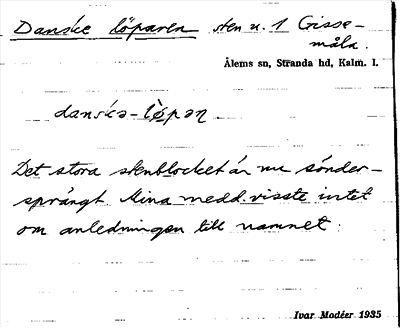 Danske löparen sten n. 1 Gisse-
måla.
Ålems sn, Stranda hd, Kalm. l.
danska-lǫ̀pan
Det stora stenblocket är nu sönder-
sprängt. Mina medd. visste intet
om anledningen till namnet.
Ivar Modéer 1935